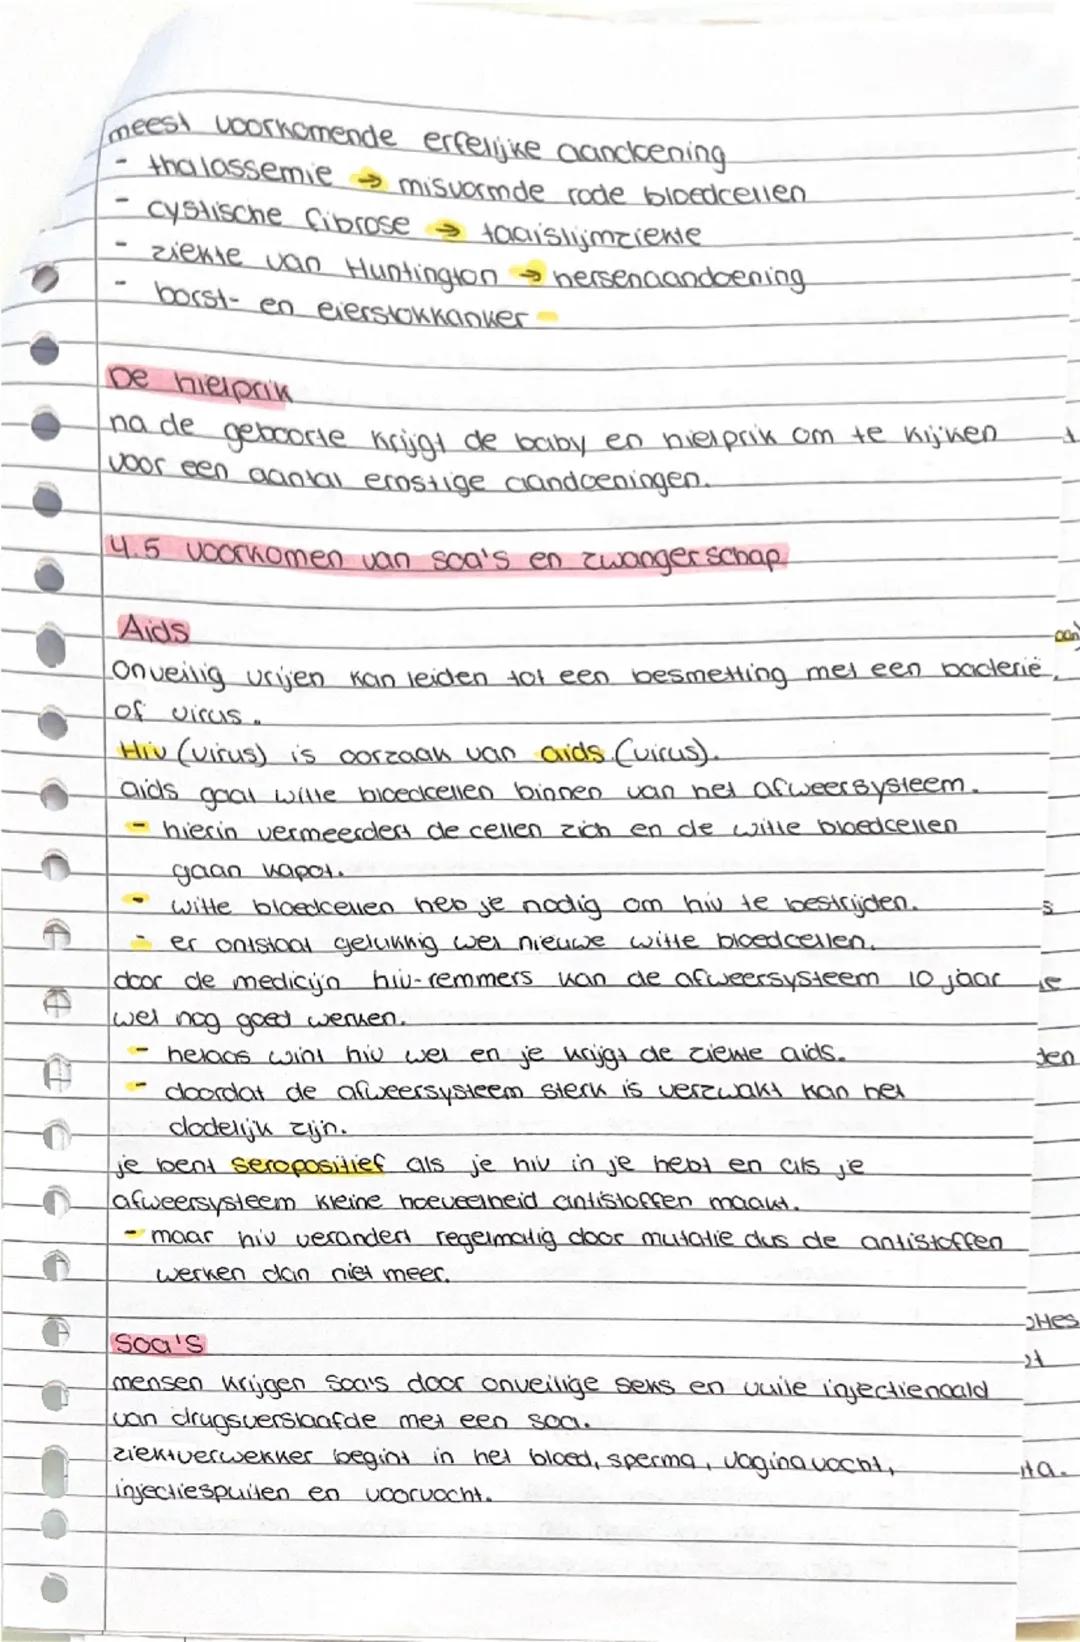 meest voorkomende erfelijke aandoening
- thalassemie → misvormde rode bloedcellen
- cystische fibrose → taaislijmziekte
- ziekte van Huntington → hersenaandoening
- borst- en eierstokkanker -
De hielprik
na de geboorte krijgt de baby en hielprik om te kijken
voor een aantal ernstige aandoeningen.
4.5 voorkomen van soa's en zwangerschap
Aids
Onveilig vrijen kan leiden tot een besmetting met een bacterie
of virus.
Hiv (virus) is oorzaak van aids (virus).
aids gaat witte bloedcellen binnen van het afweersysteem.
- hierin vermeerdert de cellen zich en de witte bloedcellen
gaan kapot.
- witte bloedcellen heb je nodig om hiv te bestrijden.
- er ontstaat gelukkig wel nieuwe witte bloedcellen.
door de medicijn hiv-remmers kan de afweersysteem 10 jaar
wel nog goed werken.
- helaas wint hiv wel en je krijgt de ziekte aids.
- doordat de afweersysteem sterk is verzwakt kan het
dodelijk zijn.
je bent seropositief als je hiv in je hebt en als je
afweersysteem kleine hoeveelheid antistoffen maakt.
- maar hiv verandert regelmatig door mutatie dus de antistoffen
werken dan niet meer.
Soa's
mensen krijgen soa's door onveilige seks en vuile injectienaald
van drugsverslaafde met een soa.
ziektverwekker begint in het bloed, sperma, vaginavocht,
injectiespuiten en voorvocht.